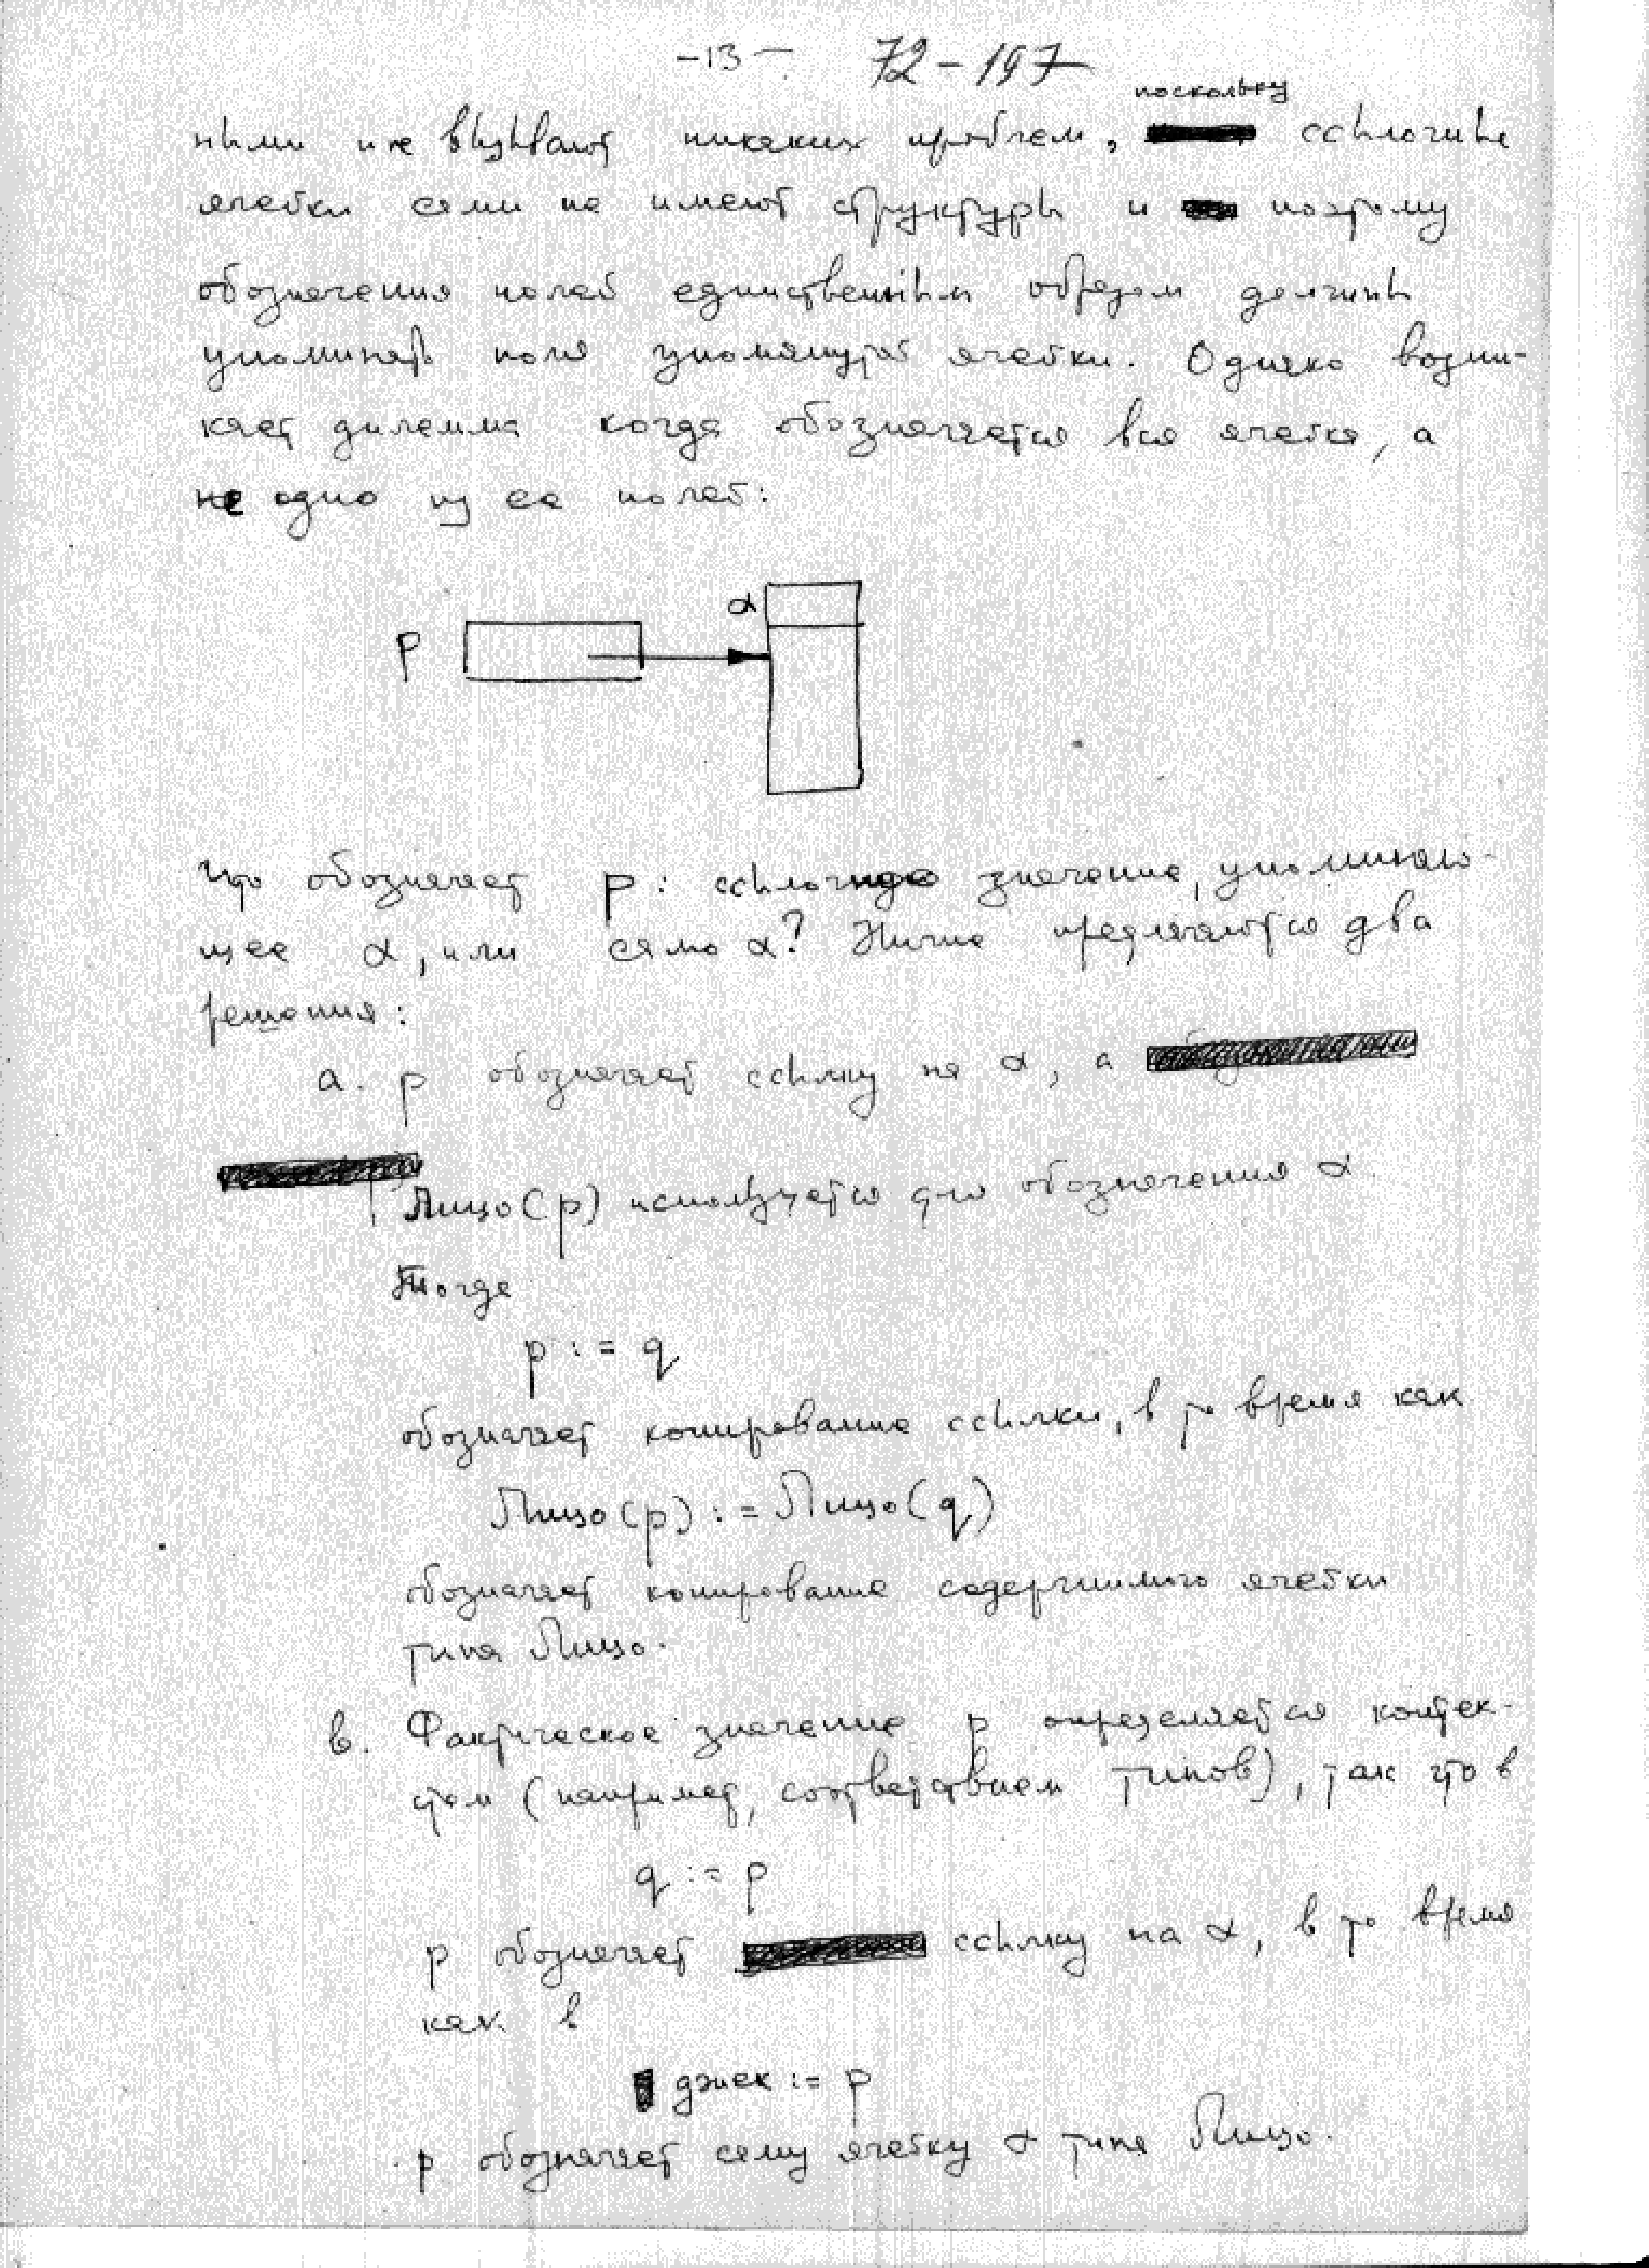 -13-
72-197
поскольку
ными не вызывают никаких проблем, ссылочные
ячейки сами не имеют структуры и поэтому
обозначения полей единственным образом должны
упоминать поля упомянутой ячейки. Однако возни-
кает дилемма когда обозначается вся ячейка, а
не одно из ее полей:
α
p
Что обозначает p: ссылочное значение, упоминаю-
щее α, или само α? Ниже предлагаются два
решения:
а. p обозначает ссылку на α, а
Лицо(p) используется для обозначения α.
Тогда
p := q
обозначает копирование ссылки, в то время как
Лицо(p) := Лицо(q)
обозначает копирование содержимого ячейки
типа Лицо.
в. Фактическое значение p определяется контек-
стом (например, соответствием типов), так что в
q := p
p обозначает ссылку на α, в то время
как в
джек := p
p обозначает саму ячейку α типа Лицо.